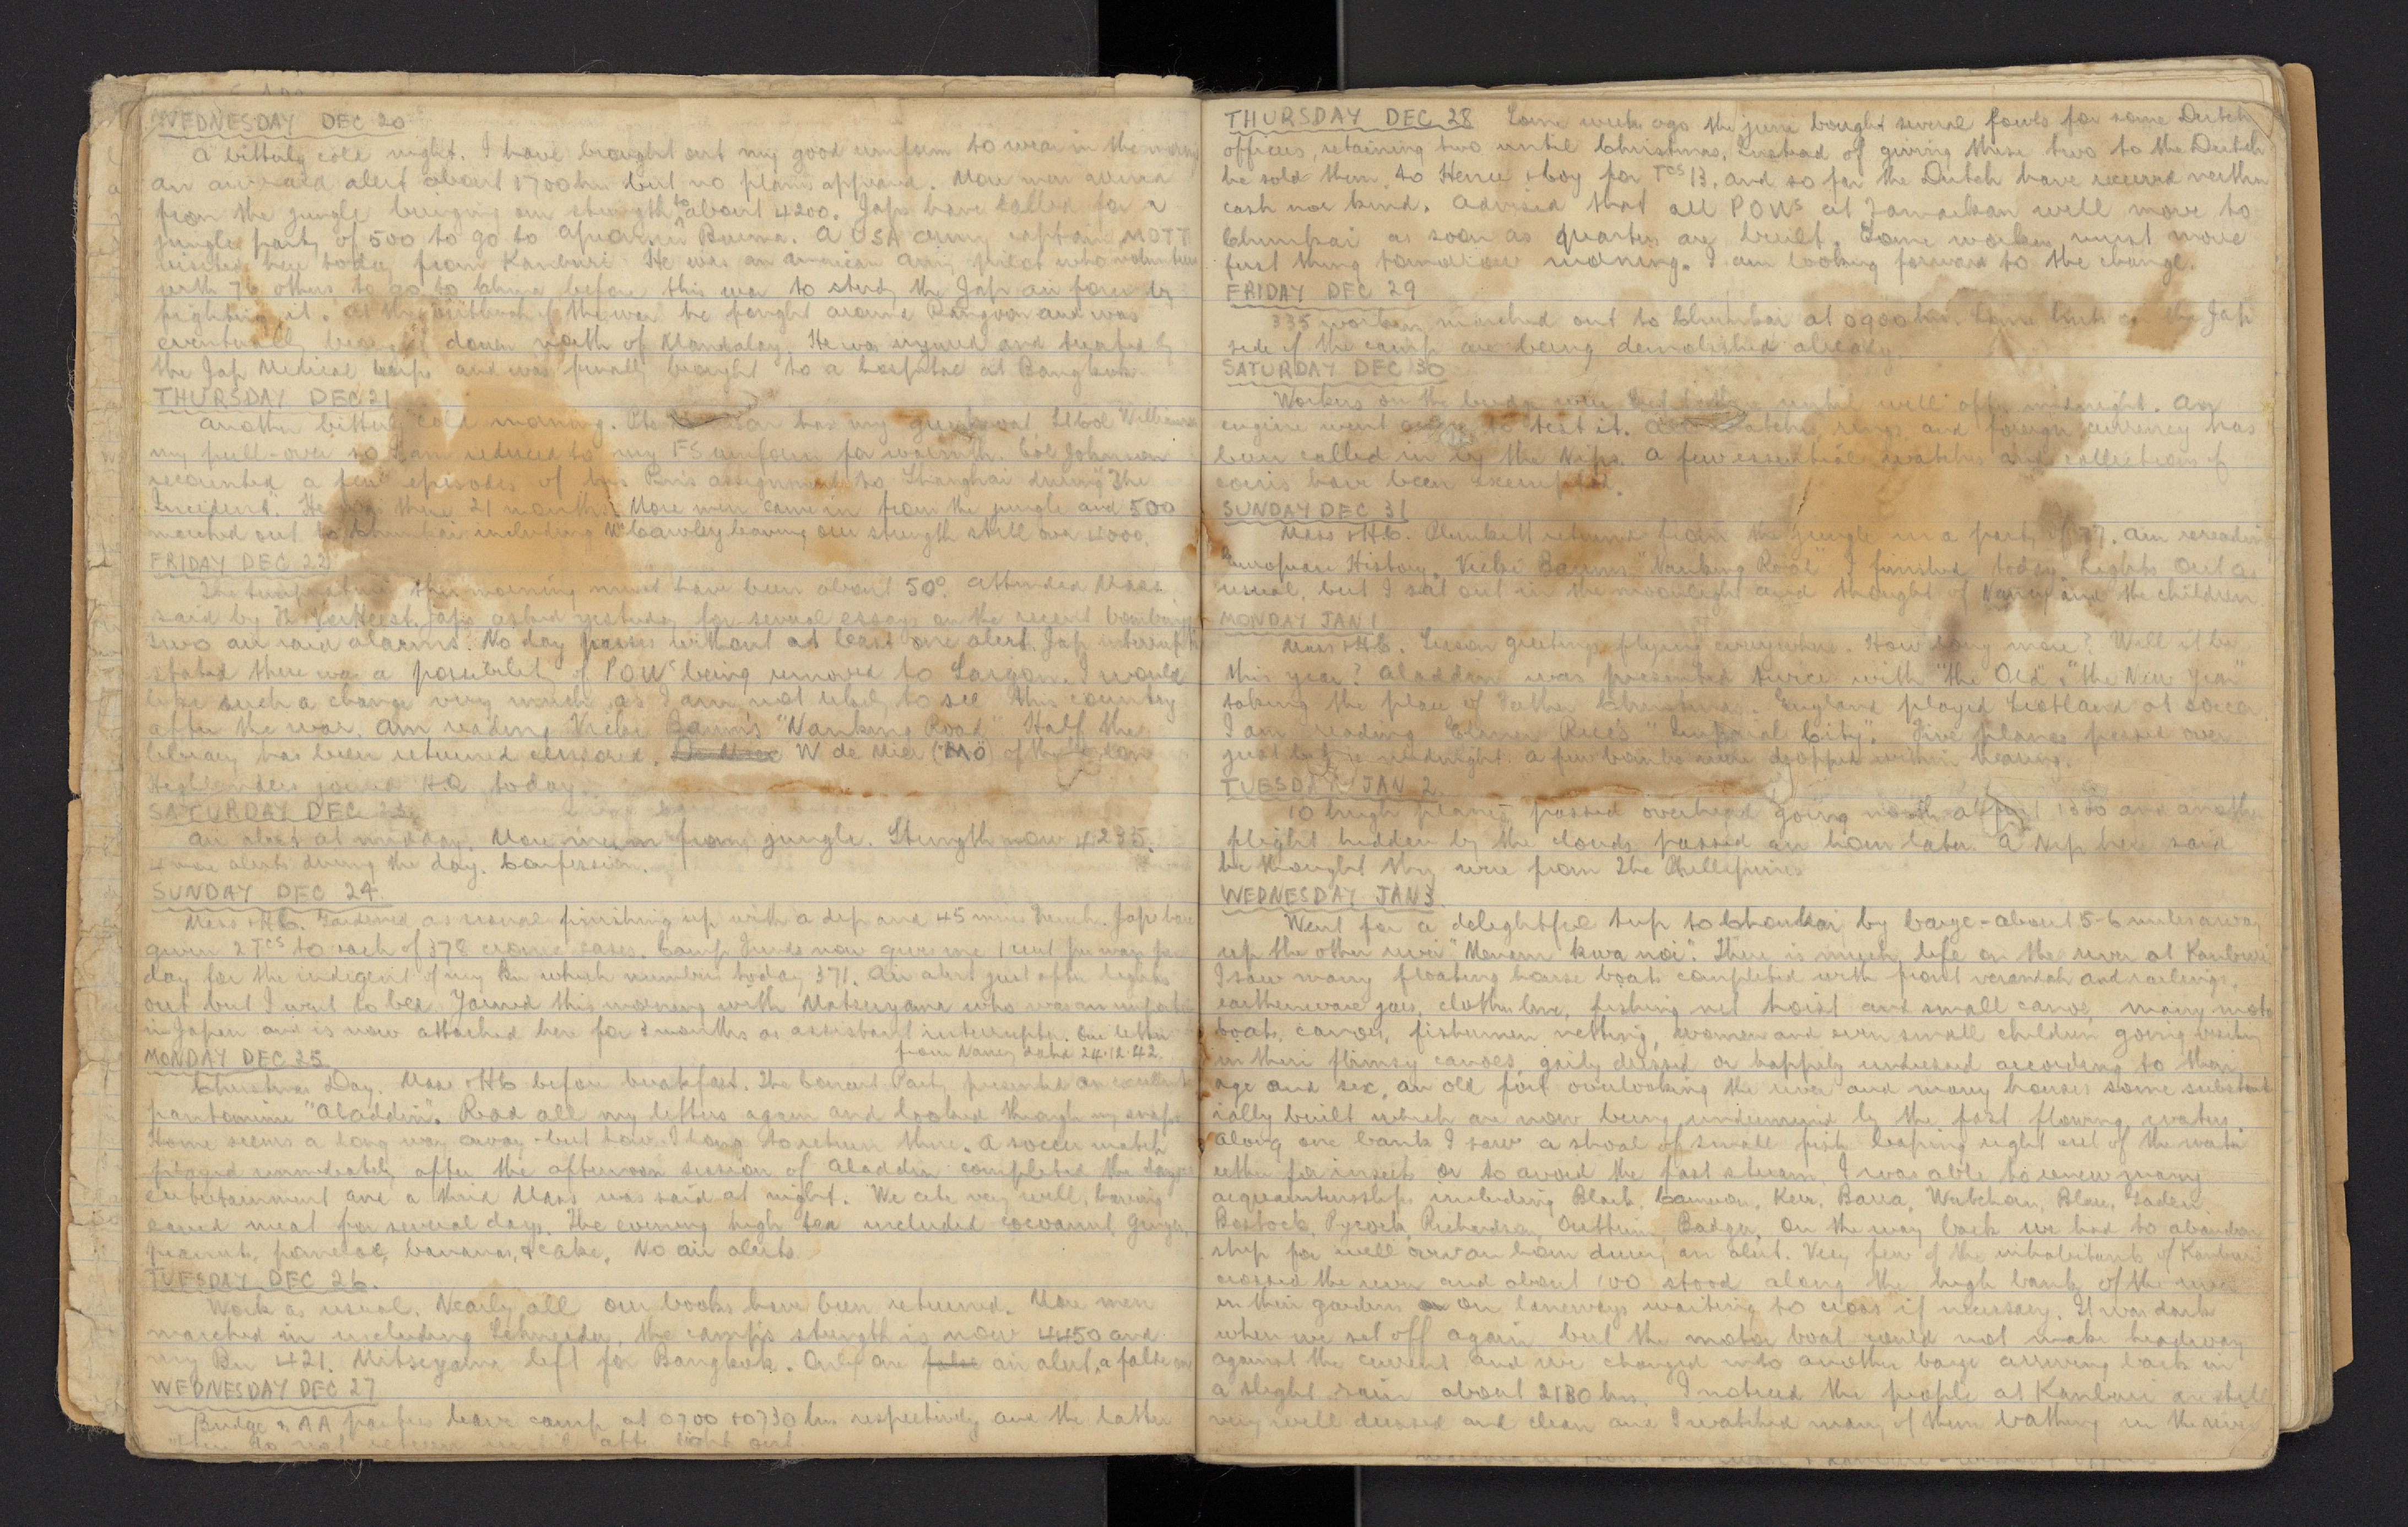 WEDNESDAY DEC 20
A bitterly cold night. I have brought out my good uniform to wear in the mornings
An air raid alert about 1700 hrs but no planes appeared. More men arrived
from the jungle bringing our strength to about 4200. Japs have called for a
jungle party of 500 to go to Burma. A USA army captain, MOTT
visited here today from Kanburi. He was an American army pilot who volunteered
with 76 others to go to China before this war to study the Jap air force by
fighting it. At the outbreak of the war he fought around Rangoon and was
eventually down north of Mandalay. He was injured and treated by
the Jap Medical Corps and was finally brought to a hospital at Bangkok.
THURSDAY DEC 21
Another bitterly cold morning. has my Ltcol Williams
my pull-over so I am reduced to my FS uniform for warmth. Col Johnson
recounted a few episodes of his Bn's assignment to Shanghai during "The
Incident". He was there 21 months. More men came in from the jungle and 500
marched out to Chunkai including Cawley leaving our strength still over 4000.
FRIDAY DEC 22
The temperature this morning must have been about 50°. Attended Mass
said by Fr Verheest. Japs asked yesterday for several essays on the recent bombings
Two air raid alarms. No day passes without at least one alert. Jap interrupter
stated there was a possibility of POWs being removed to Saigon. I would
like such a change very much as I am not likely to see this country
after the war. Am reading Vicki Baum's "Nanking Road" Half the
library has been returned censored. W de Mier (MO) of the
Highlanders joined HQ today.
SATURDAY DEC 23
An alert at midday. More men in from jungle. Strength now 4235.
4 more alerts during the day. Confession.
SUNDAY DEC 24.
Mass & HC. Gardened as usual finishing up with a dip and 45 mins French. Japs have
given 2 Tcs to each of 378 cases. Camp Funds now give me 1 cent per man per
day for the indigent of my Bn which numbers today 371. An alert just after lights
out but I went to bed. Yarned this morning with Matsuyama who was an
in Japan and is now attached here for 3 months as assistant interrupter. One letter
from Nancy dated 24.12.42.
MONDAY DEC 25
Christmas Day. Mass & HC before breakfast. The Concert Party presented an excellent
pantomime "Aladdin". Read all my letters again and looked through my snaps.
Home seems a long way away - but how I long to return there. A soccer match
played immediately after the afternoon session of Aladdin completed the days
entertainment and a third Mass was said at night. We ate very well, having
saved meat for several days. The evening high tea included cocoanut, ginger,
peanuts, pomeloe, bananas, & cake. No air alerts.
TUESDAY DEC 26.
Work as usual. Nearly all our books have been returned. More men
marched in including Schneider. The camp's strength is now 4450 and
my Bn 421. Mitseyama left for Bangkok. Only one air alert, a false one
WEDNESDAY DEC 27
Bridge & AA parties leave camp at 0700 & 0730 hrs respectively and the latter
do not return until after lights out
THURSDAY DEC 28 Some weeks ago the bought several fowls for some Dutch
officers, retaining two until Christmas. Instead of giving these two to the Dutch
he sold them to & Coy for Tcs 13, and so far the Dutch have received neither
cash nor kind. Advised that all POWs at Tamarkan will move to
Chunkai as soon as quarters are built. Some workers must move
first thing tomorrow morning. I am looking forward to the change.
FRIDAY DEC 29
335 workers marched out to Chunkai at 0900 hrs. Some huts on the Jap
side of the camp are being demolished already.
SATURDAY DEC 30
Workers on the bridge were until well after midnight. An
engine went over to test it. watches, rings and foreign currency has
been called in by the Nips. A few essential watches and collections of
coins have been exempted.
SUNDAY DEC 31
Mass & HC. Plunkett returned from the jungle in a party of 77. Am rereading
European History. Vicki Baum's "Nanking Road" I finished today. Lights out as
usual, but I sat out in the moonlight and thought of Nancy and the children.
MONDAY JAN 1
Mass & HC. Season greetings flying everywhere. How long more? Will it be
this year? Aladdin was presented twice with "the Old" & "the New Year"
taking the place of Father Christmas. England played Scotland at soccer.
I am reading Elmer Rice's "Imperial City". Five planes passed over
just before midnight. A few bombs were dropped within hearing.
TUESDAY JAN 2.
10 high planes passed overhead going north at 1300 and another
flight hidden by the clouds passed an hour later. A Nip here said
he thought they were from the Phillipines
WEDNESDAY JAN 3.
Went for a delightful trip to Chunkai, by barge - about 5-6 miles away
up the other river "Menem kwa noi". There is much life on the river at Kanburi
I saw many floating house boats completed with front verandah and railings,
earthenware jars, clothes line, fishing net hoist and small canoe, many motor
boats, canoes, fishermen netting, women and even small children going
in their flimsy canoes, gaily dressed or happily undressed according to their
age and sex, an old fort overlooking the river and many houses some substant-
ially built which are now being undermined by the fast flowing water.
Along one bank I saw a shoal of small fish leaping right out of the water
either for insects or to avoid the fast stream. I was able to renew many
acquaintanceships including Black, Cameron, Kerr, Barra, Blair, Laden,
Bostock, Pycock, Richardson, Outtrim, Badger. On the way back we had to abandon
ship for well over an hour during an alert. Very few of the inhabitants of Kanburi
crossed the river and about 100 stood along the high bank of the river
in their gardens or on laneways waiting to cross if necessary. It was dark
when we set off again but the motor boat could not make headway
against the current and we changed into another barge arriving back in
a slight rain about 2130 hrs. I noticed the people at Kanburi are still
very well dressed and clean and I watched many of them bathing in the river